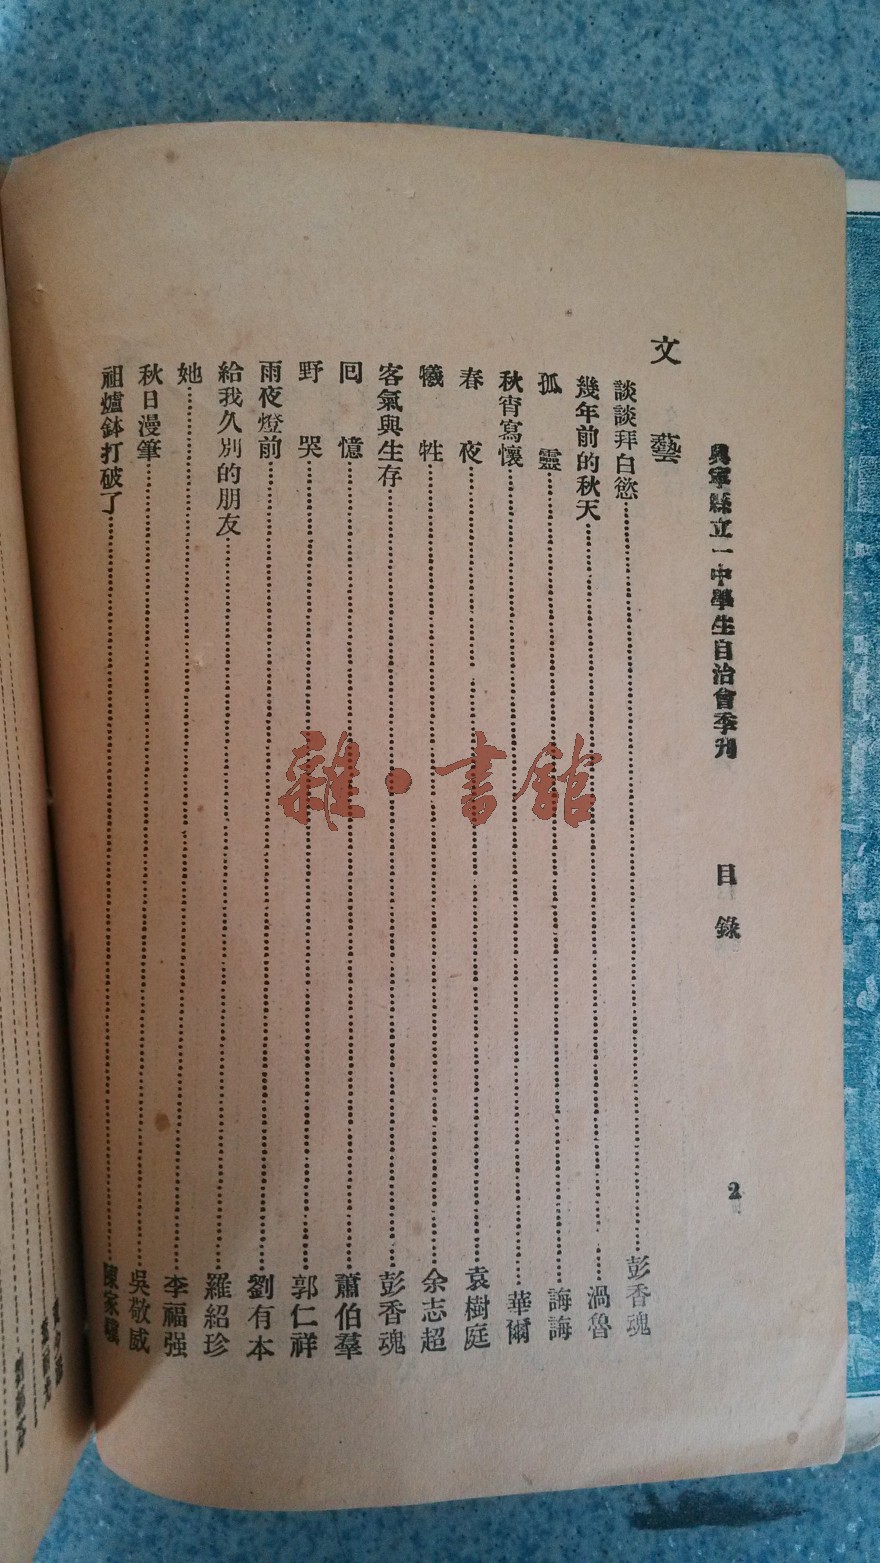 興寧縣立一中學生自治會季刋 目錄 2
文藝
談談拜白慾 彭香魂
幾年前的秋天 渦魯
孤靈 誨誨
秋宵寫懷 華爾
春夜 袁樹庭
犧牲 余志超
客氣與生存 彭香魂
囘憶 蕭伯羣
野哭 郭仁祥
雨夜燈前 劉有本
給我久別的朋友 羅紹珍
她 李福强
秋日漫筆 吳敬威
祖爐鉢打破了 陳家
雜·書館